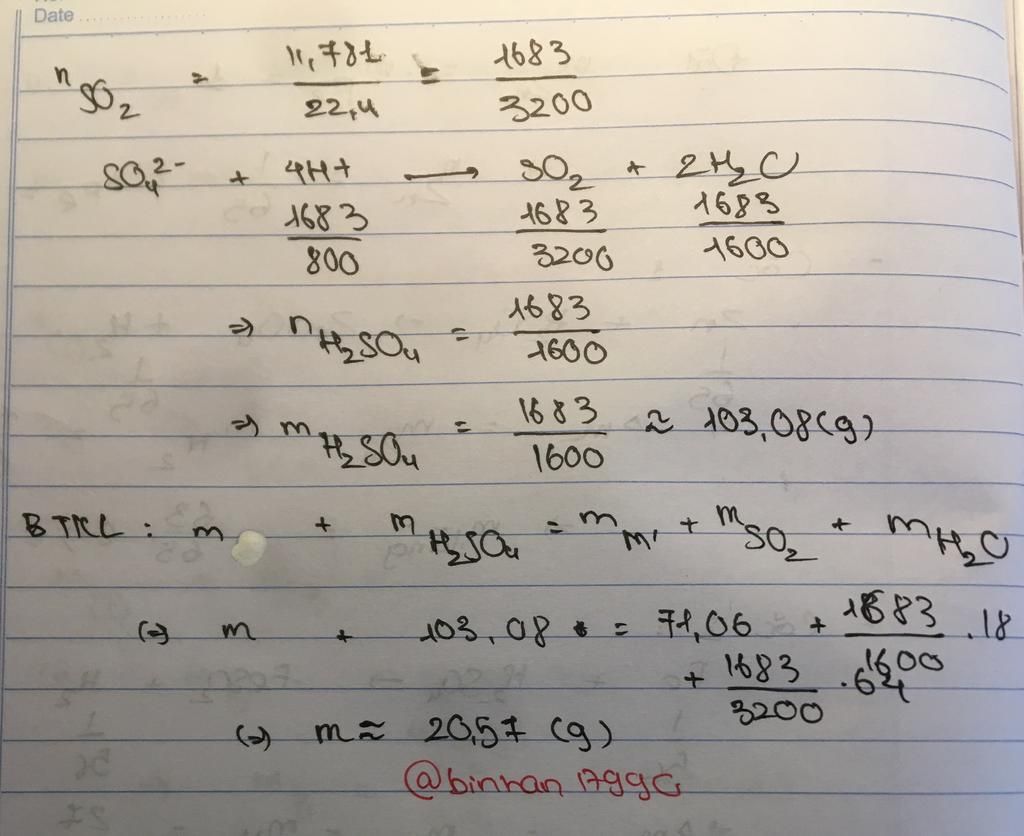 Date
n SO2 = 11,781/22,4 = 1683/3200
SO4 2- + 4H+ → SO2 + 2H2O
1683/800 1683/3200 1683/1600
=> n H2SO4 = 1683/1600
=> m H2SO4 = 1683/1600 ≈ 103,08(g)
BTKL : m + m H2SO4 = m m' + m SO2 + m H2O
(=) m + 103,08 = 71,06 + 1683/1600 .18
+ 1683/3200 .64
(=) m ≈ 20,57 (g)